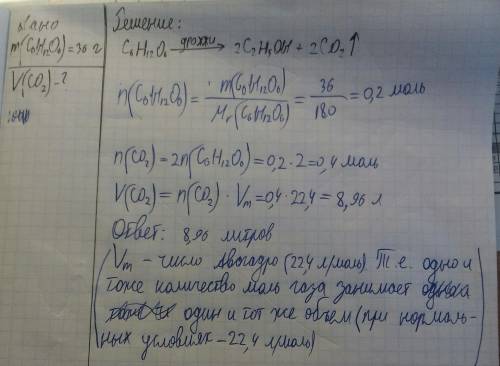 Дано
m(C6H12O6)=36 г
V(CO2)-?
Решение:
C6H12O6 дрожжи→ 2C2H5OH + 2CO2↑
n(C6H12O6) = m(C6H12O6)/Mr(C6H12O6) = 36/180 = 0,2 моль
n(CO2) = 2n(C6H12O6) = 0,2 · 2 = 0,4 моль
V(CO2) = n(CO2) · Vm = 0,4 · 22,4 = 8,96 л
Ответ: 8,96 литров
(Vm - число Авогадро (22,4 л/моль) Т.е. одно и
тоже количество моль газа занимает
один и тот же объем (при нормаль-
ных условиях - 22,4 л/моль)